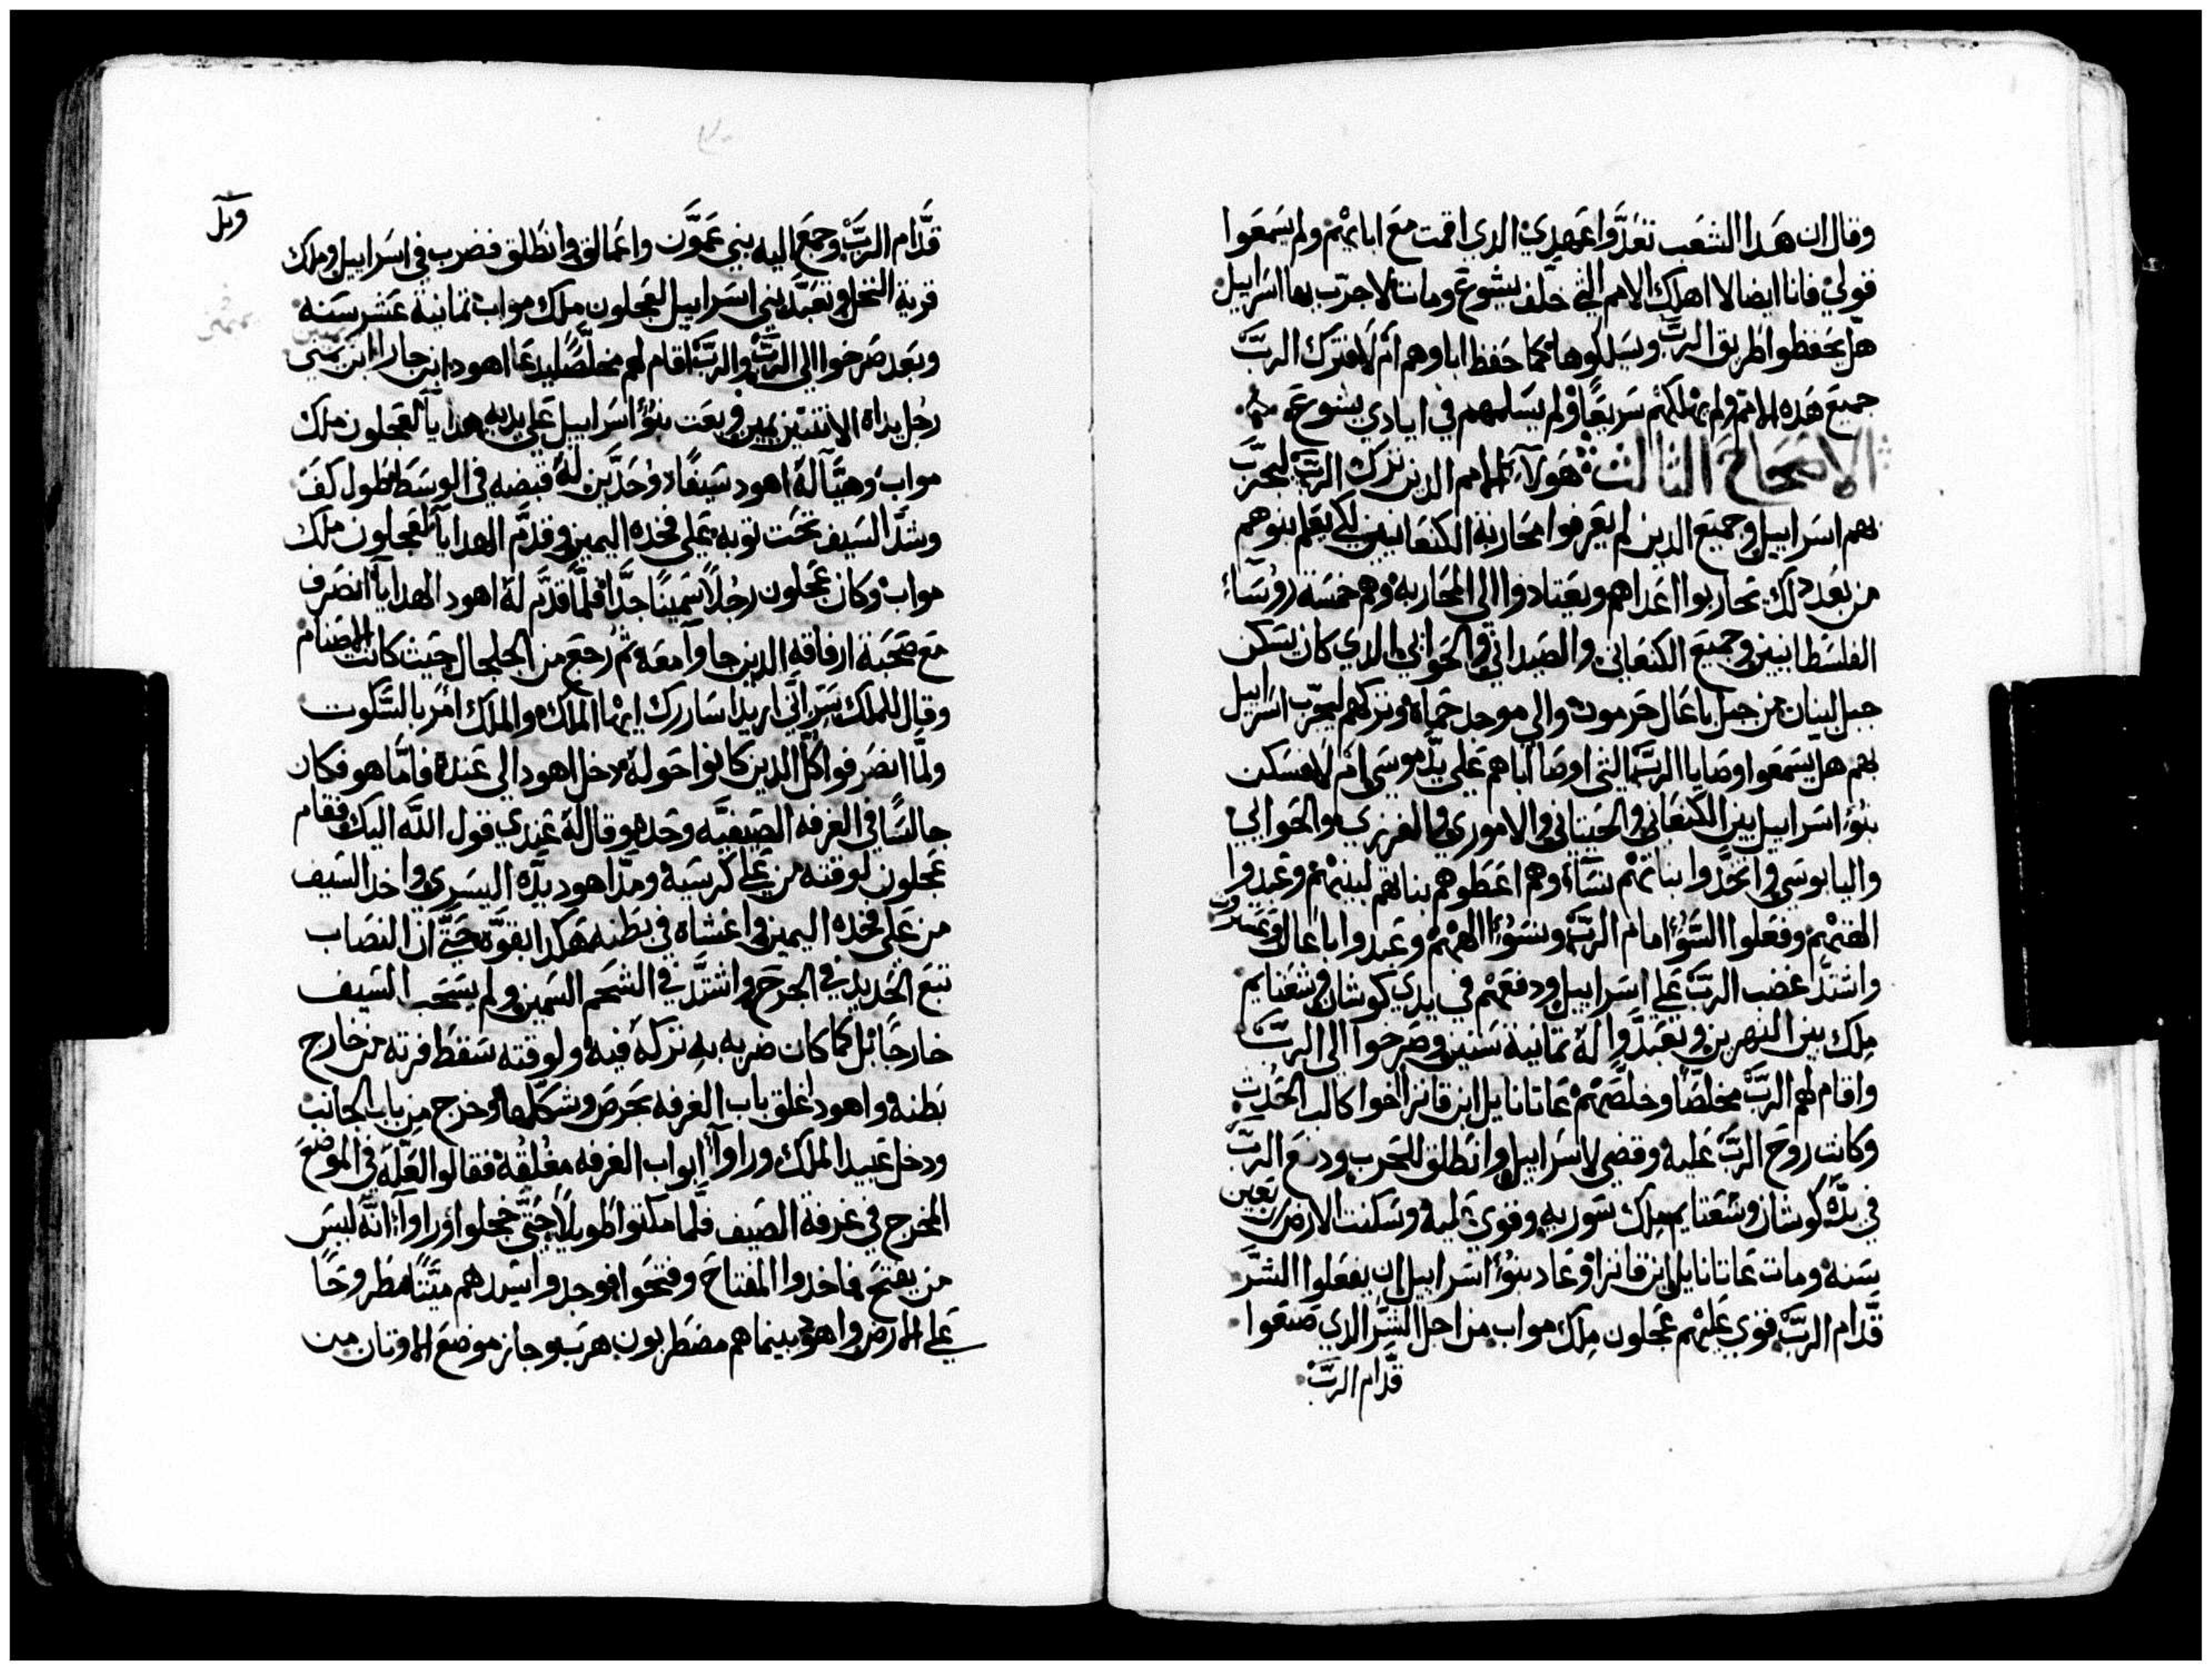 وقال ان هدا الشعب تعدَّوا عهدي الدي اقمت مع ابايهم ولم يسمعوا
قولي فانا ايضا لا اهلك الامم التي خلَّف يشوع ومات لاجرّب بها اسراييل
هل يحفظوا طريق الربّ ويسلكوها كما حفظ اباوهم ام لا فترك الربّ
جميع هده الامم ولم يهلكهم سريعًا ولم يسلمهم في ايادي يشوع
الاصحاح التالت هولآء الامم الدين ترك الربّ ليجرّب
بهم اسراييل وجميع الدين لم يعرفوا محاربة الكنعانيين لكي يتعلم بنوهم
من بعد دلك تحاربوا اعداهم ويعتادوا الي المحاربه وهم خمسة روسآء
الفلسطانيين وجميع الكنعاني والصيداني والحواني الدي كان يسكن
جبل لبنان من جبل باعال حرمون والي موجد حماة وتركهم ليجرّب اسراييل
بهم هل يسمعوا وصايا الربّ التي اوصا اباهم علي يدّ موسي ام لا فسكن
بنوُ اسراييل بين الكنعاني والحيتاني والاموري والفرزي والحوابي
واليابوسي واتخدَّوا بناتهم نسآء وهم اعطوهم بناتهم لبينهم وعبدوا
الهتهم وفعلوا السوُ امام الربّ ونسوُا الههم وعبدوا باعال وعستروت
واشتدَّ غضب الربّ علي اسراييل ودفعهم في يدي كوشان وشعتايم
ملك بين النهرين وتعبدَّوا له تمانية سنين وصرخوا الي الربّ
واقام لهم الربّ مخلصًا وخلصّهم عاتانايل ابن قانزا اخوا كالب الحديت
وكانت روح الربّ عليه وقضي لاسراييل وانطلق للحرب ودفع الربّ
في يدّه كوشان وشعتايم ملك سوريه وقوي عليه وسكنت الارض اربعين
سنه ومات عاتانايل ابن قانزا وعاد بنوُ اسراييل ان يفعلوا الشرّ
قدَّام الربّ فقوي عليهم عجلون ملك مواب من اجل الشرّ الدي صنعوا
قدَّام الربّ
قدَّام الربّ وجمع اليه بني عمَّون واعمالق وانطلق فضرب في اسراييل وملك
قرية النخل وتعبَّد بني اسراييل لعجلون ملك مواب تمانية عشر سنه
وبعد صرخوا الي الربّ والربّ اقام لهم مخلصًا ليدعا اهود ابن جارا ابن يميني
رجُل يداه الاتنتين يمين وبعت بنوُ اسراييل علي يديه هدايآ لعجلون ملك
مواب وهيَّآ لهُ اهود سيفًا دوحدَّين لهُ قبضه في الوسط طول كفّ
وشدَّ السيف تحت توبه علي فخده اليمين وقدَّم الهدايآ لعجلون ملك
مواب وكان عجلون رجُلاً سمينًا جدَّا فلمَّا قدَّم لهُ اهود الهدايآ انصرف
مع صحبة ارفاقه الدين جاوآ معه تم رجع من الجلجال حيت كانت الاصنام
وقال للملك سرّ انّي اريد اساررك ايها الملك والملك امر بالسَّكوت
ولمَّا انصرفوا كلَّ الدين كانوا حوله دخل اهود الي عنده فامَّا هو فكان
جالسًا في الغرفه الصيفيَّه وحده وقال لهُ عندي قول اللَّه اليك فقام
عجلون لوقته من علي كرسيهُ ومدَّ اهود يدّه اليسري واخد السيف
من علي فخده اليمين واغشاه في بطنه هكدا بقوَّه حتّي ان النصاب
تبع الحديد في الجرح واشتدَّ في الشحم السمين ولم يسحب السيف
خارجًا بل كما كان ضربه به تركه فيه ولوقته سقط فرته من خارج
بطنه واهود غلق باب الغرفه بحرص وشكّلها وخرج من باب الجانب
ودخل عبيد الملك وراوآ ابواب الغرفه مغلقه فقالوا لعلّه في الموضع
المخرج في غرفة الصيف فلَّما مكتوا طويلاً حتَّي خجلوا وراوآ انَّه ليس
من يفتح فاخدوا المفتاح وفتحوا فوجدوا سيدهم ميّتًا مطروحًا
علي الارض واهود بينما هم مضطربون هرب وجاز موضع الاوتان من